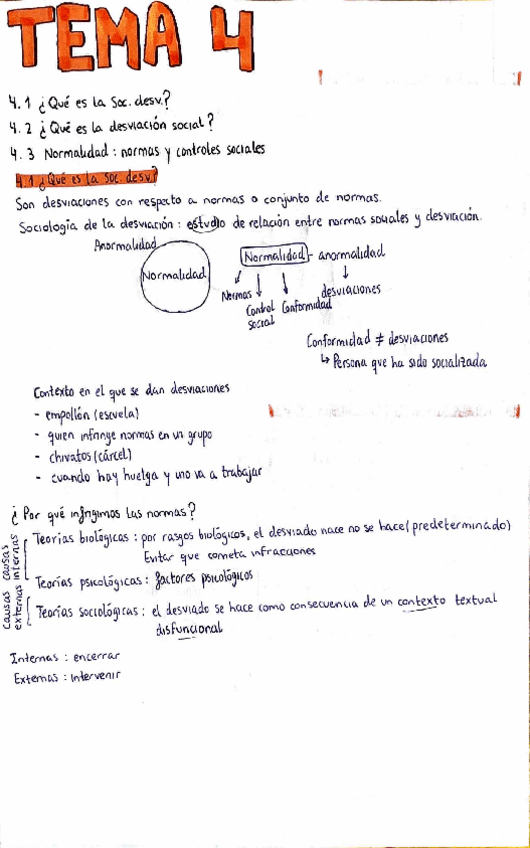 TEMA 4
4.1 ¿Qué es la Soc. desv.?
4.2 ¿Qué es la desviación social?
4.3 Normalidad: normas y controles sociales
4.1 ¿Qué es la Soc. desv.?
Son desviaciones con respecto a normas o conjunto de normas.
Sociología de la desviación: estudio de relación entre normas sociales y desviación.
Anormalidad
Normalidad
Normalidad - anormalidad
Normas
Control social
Conformidad
desviaciones
Conformidad ≠ desviaciones
↳ Persona que ha sido socializada
Contexto en el que se dan desviaciones
- empollón (escuela)
- quien infringe normas en un grupo
- chivatos (cárcel)
- cuando hay huelga y uno va a trabajar
¿Por qué infrigimos las normas?
causas internas
Teorías biológicas: por rasgos biológicos, el desviado nace no se hace (predeterminado)
Evitar que cometa infracciones
Teorías psicológicas: factores psicológicos
Causas externas
Teorías sociológicas: el desviado se hace como consecuencia de un contexto textual
disfuncional
Internas: encerrar
Externas: intervenir